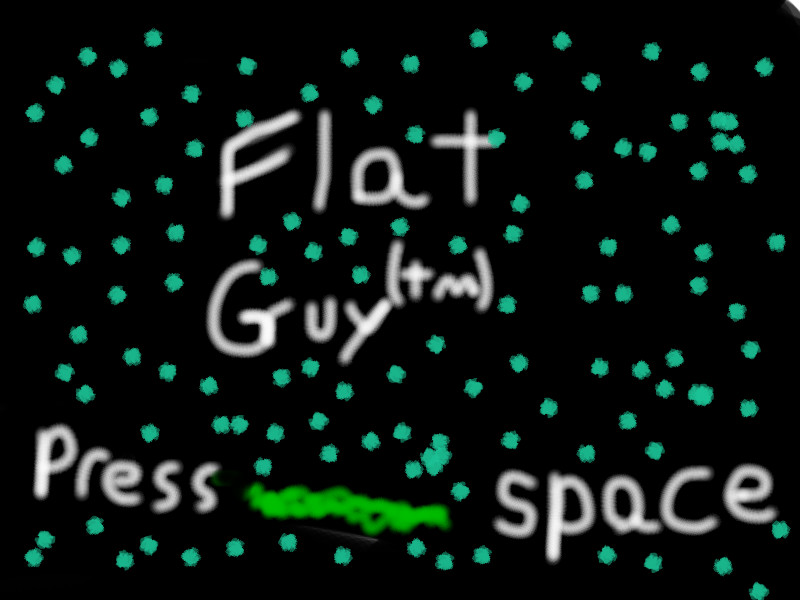 Flat
Guy(tm)
Press space